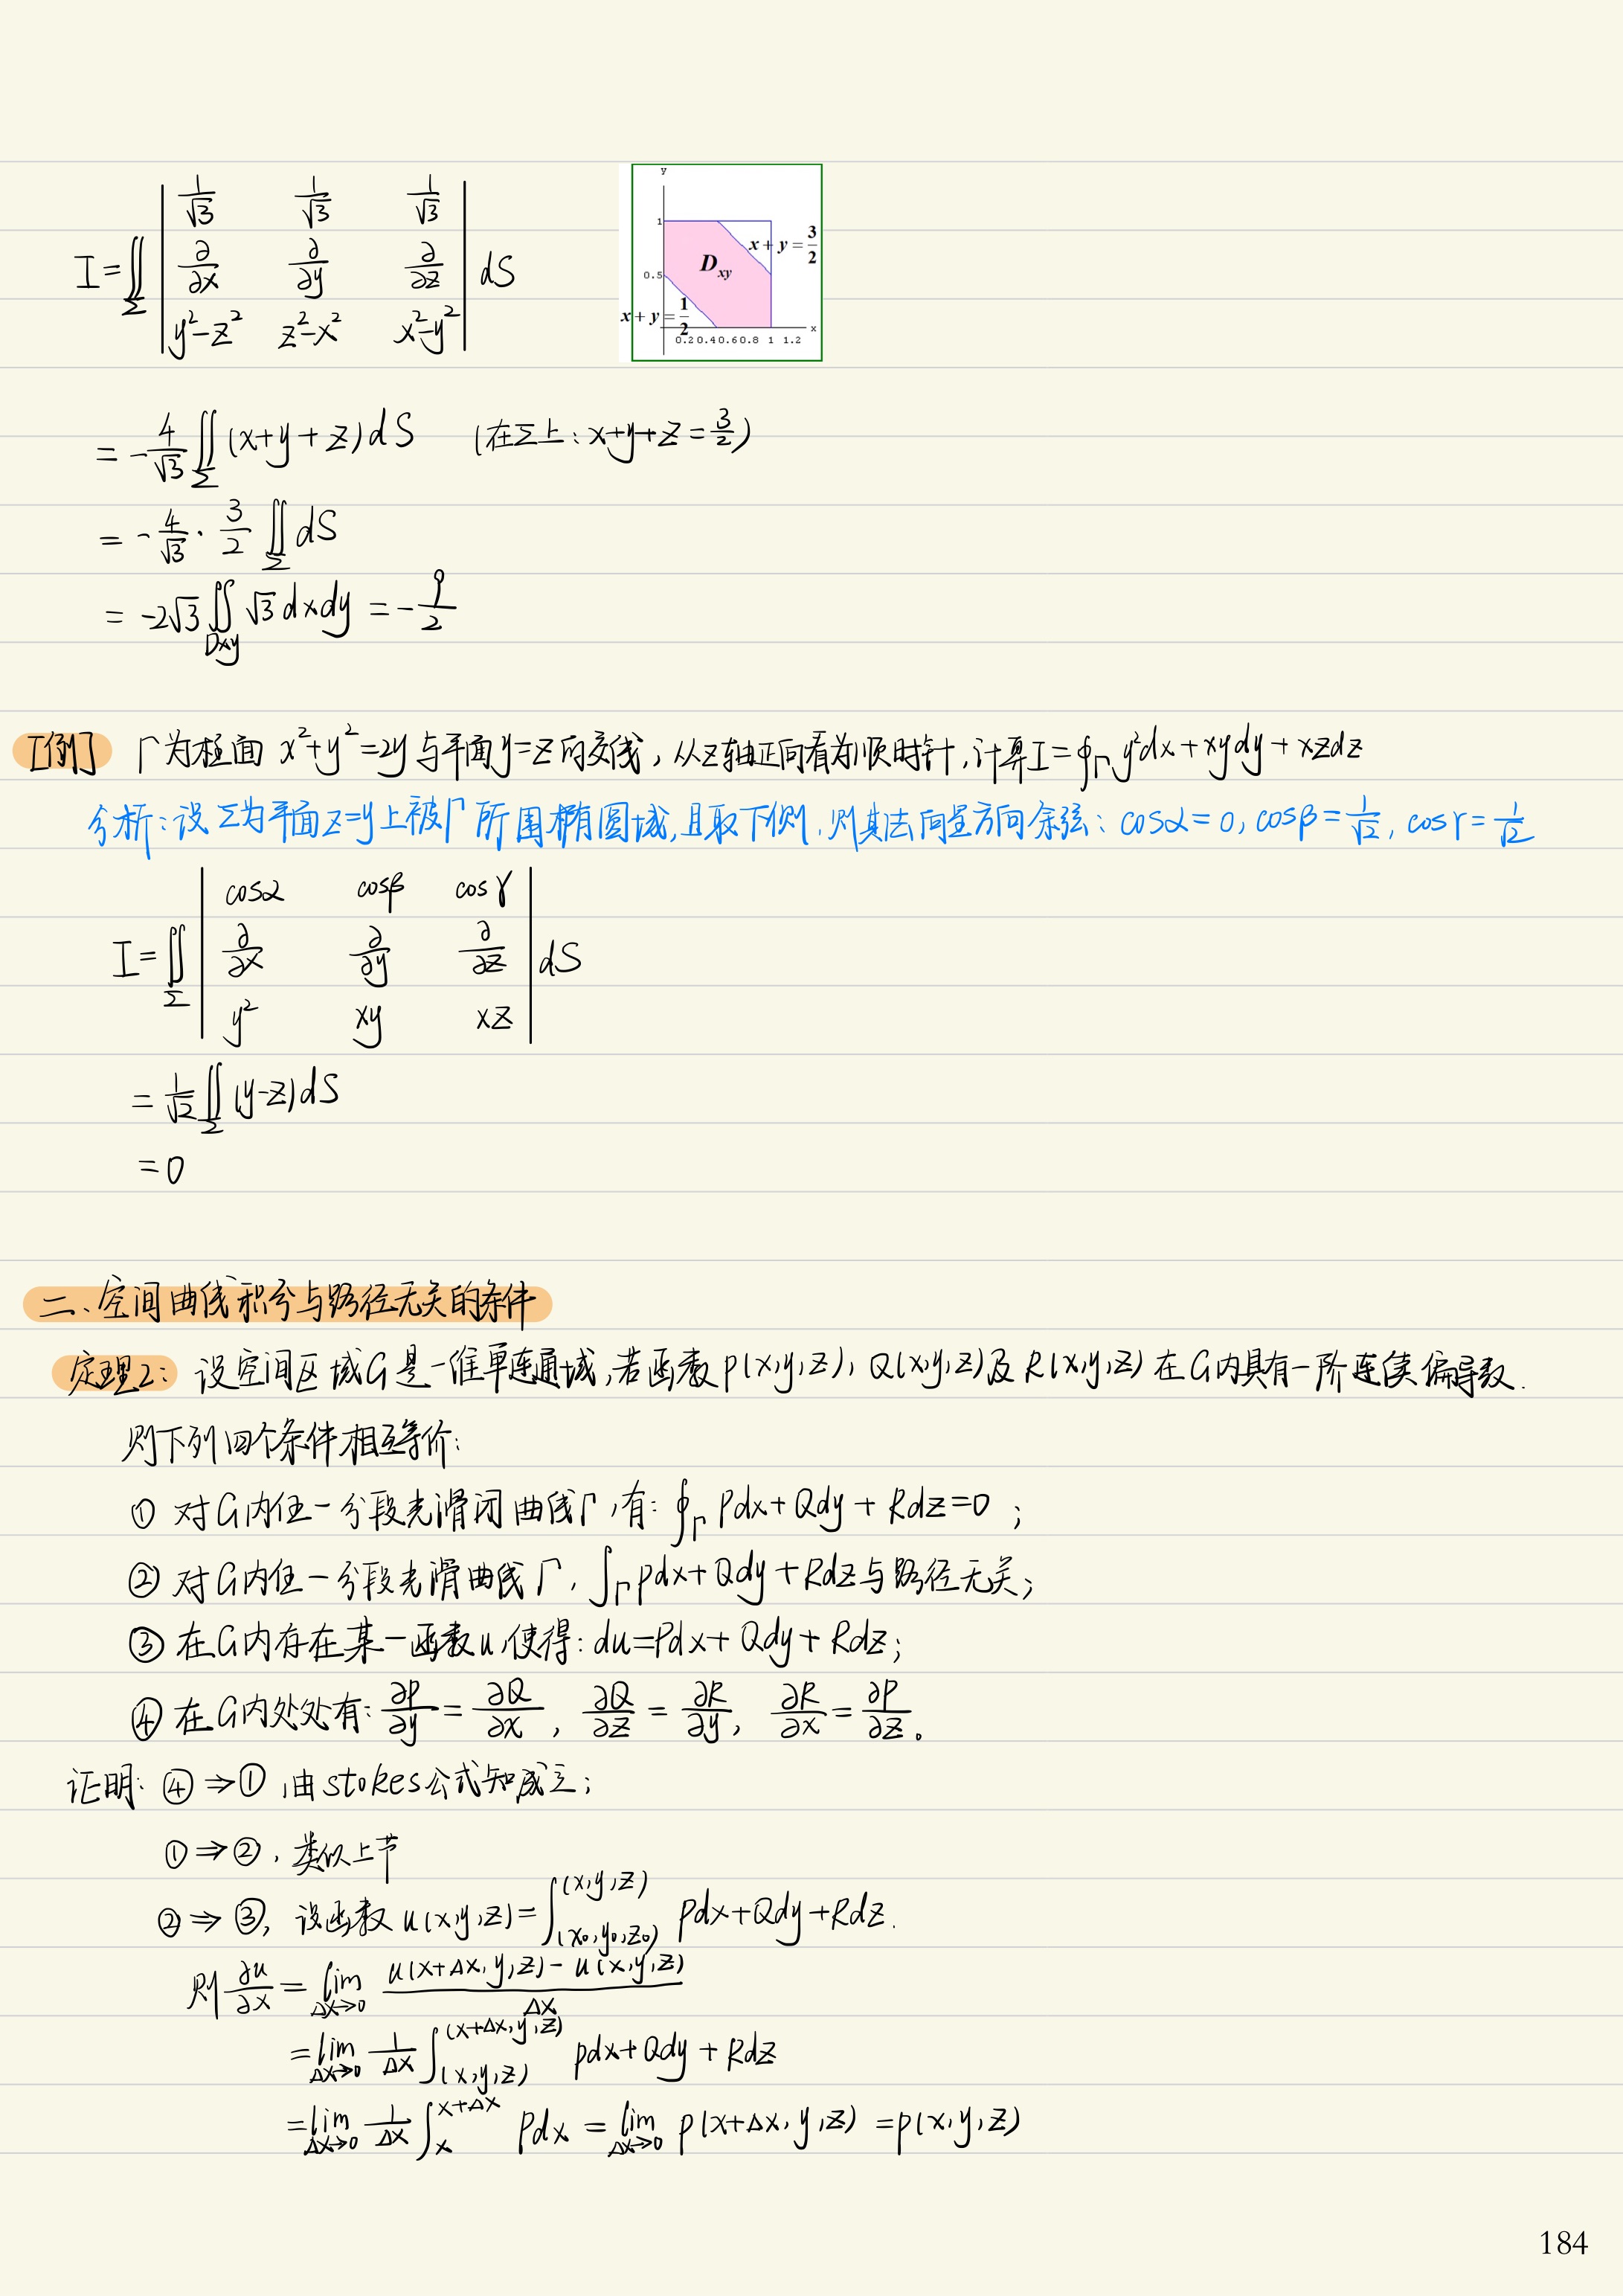 I=∬_Σ | 1/√3 1/√3 1/√3 ; ∂/∂x ∂/∂y ∂/∂z ; y²-z² z²-x² x²-y² | dS
y
1
x + y = 3/2
D_xy
0.5
x + y = 1/2
0.2 0.4 0.6 0.8 1 1.2
x
= -4/√3 ∬_Σ (x+y+z)dS (在Σ上：x+y+z=3/2)
= -4/√3 · 3/2 ∬_Σ dS
= -2√3 ∬_Dxy √3 dxdy = -9/2
[例] Γ为柱面 x²+y²=2y 与平面 y=z 的交线，从z轴正向看为顺时针，计算I=∮_Γ y²dx+xydy+xzdz
分析：设Σ为平面z=y上被Γ所围椭圆域，且取下侧，则其法向量方向余弦：cosα=0, cosβ=1/√2, cosγ=1/√2
I=∬_Σ | cosα cosβ cosγ ; ∂/∂x ∂/∂y ∂/∂z ; y² xy xz | dS
= 1/√2 ∬_Σ (y-z)dS
=0
二、空间曲线积分与路径无关的条件
定理2：设空间区域G是一维单连通域，若函数P(x,y,z)，Q(x,y,z)及R(x,y,z)在G内具有一阶连续偏导数.
则下列四个条件相互等价：
① 对G内任一分段光滑闭曲线Γ，有：∮_Γ Pdx+Qdy+Rdz=0；
② 对G内任一分段光滑曲线Γ，∫_Γ Pdx+Qdy+Rdz与路径无关；
③ 在G内存在某一函数u，使得：du=Pdx+Qdy+Rdz；
④ 在G内处处有：∂P/∂y=∂Q/∂x，∂Q/∂z=∂R/∂y，∂R/∂x=∂P/∂z。
证明：④⇒① 由stokes公式知成立；
①⇒②，类似上节
②⇒③，设函数 u(x,y,z)=∫_(x₀,y₀,z₀)^(x,y,z) Pdx+Qdy+Rdz.
则 ∂u/∂x = lim_{Δx→0} (u(x+Δx,y,z)-u(x,y,z))/Δx
= lim_{Δx→0} 1/Δx ∫_(x,y,z)^(x+Δx,y,z) Pdx+Qdy+Rdz
= lim_{Δx→0} 1/Δx ∫_x^{x+Δx} Pdx = lim_{Δx→0} P(x+Δx,y,z) = P(x,y,z)
184